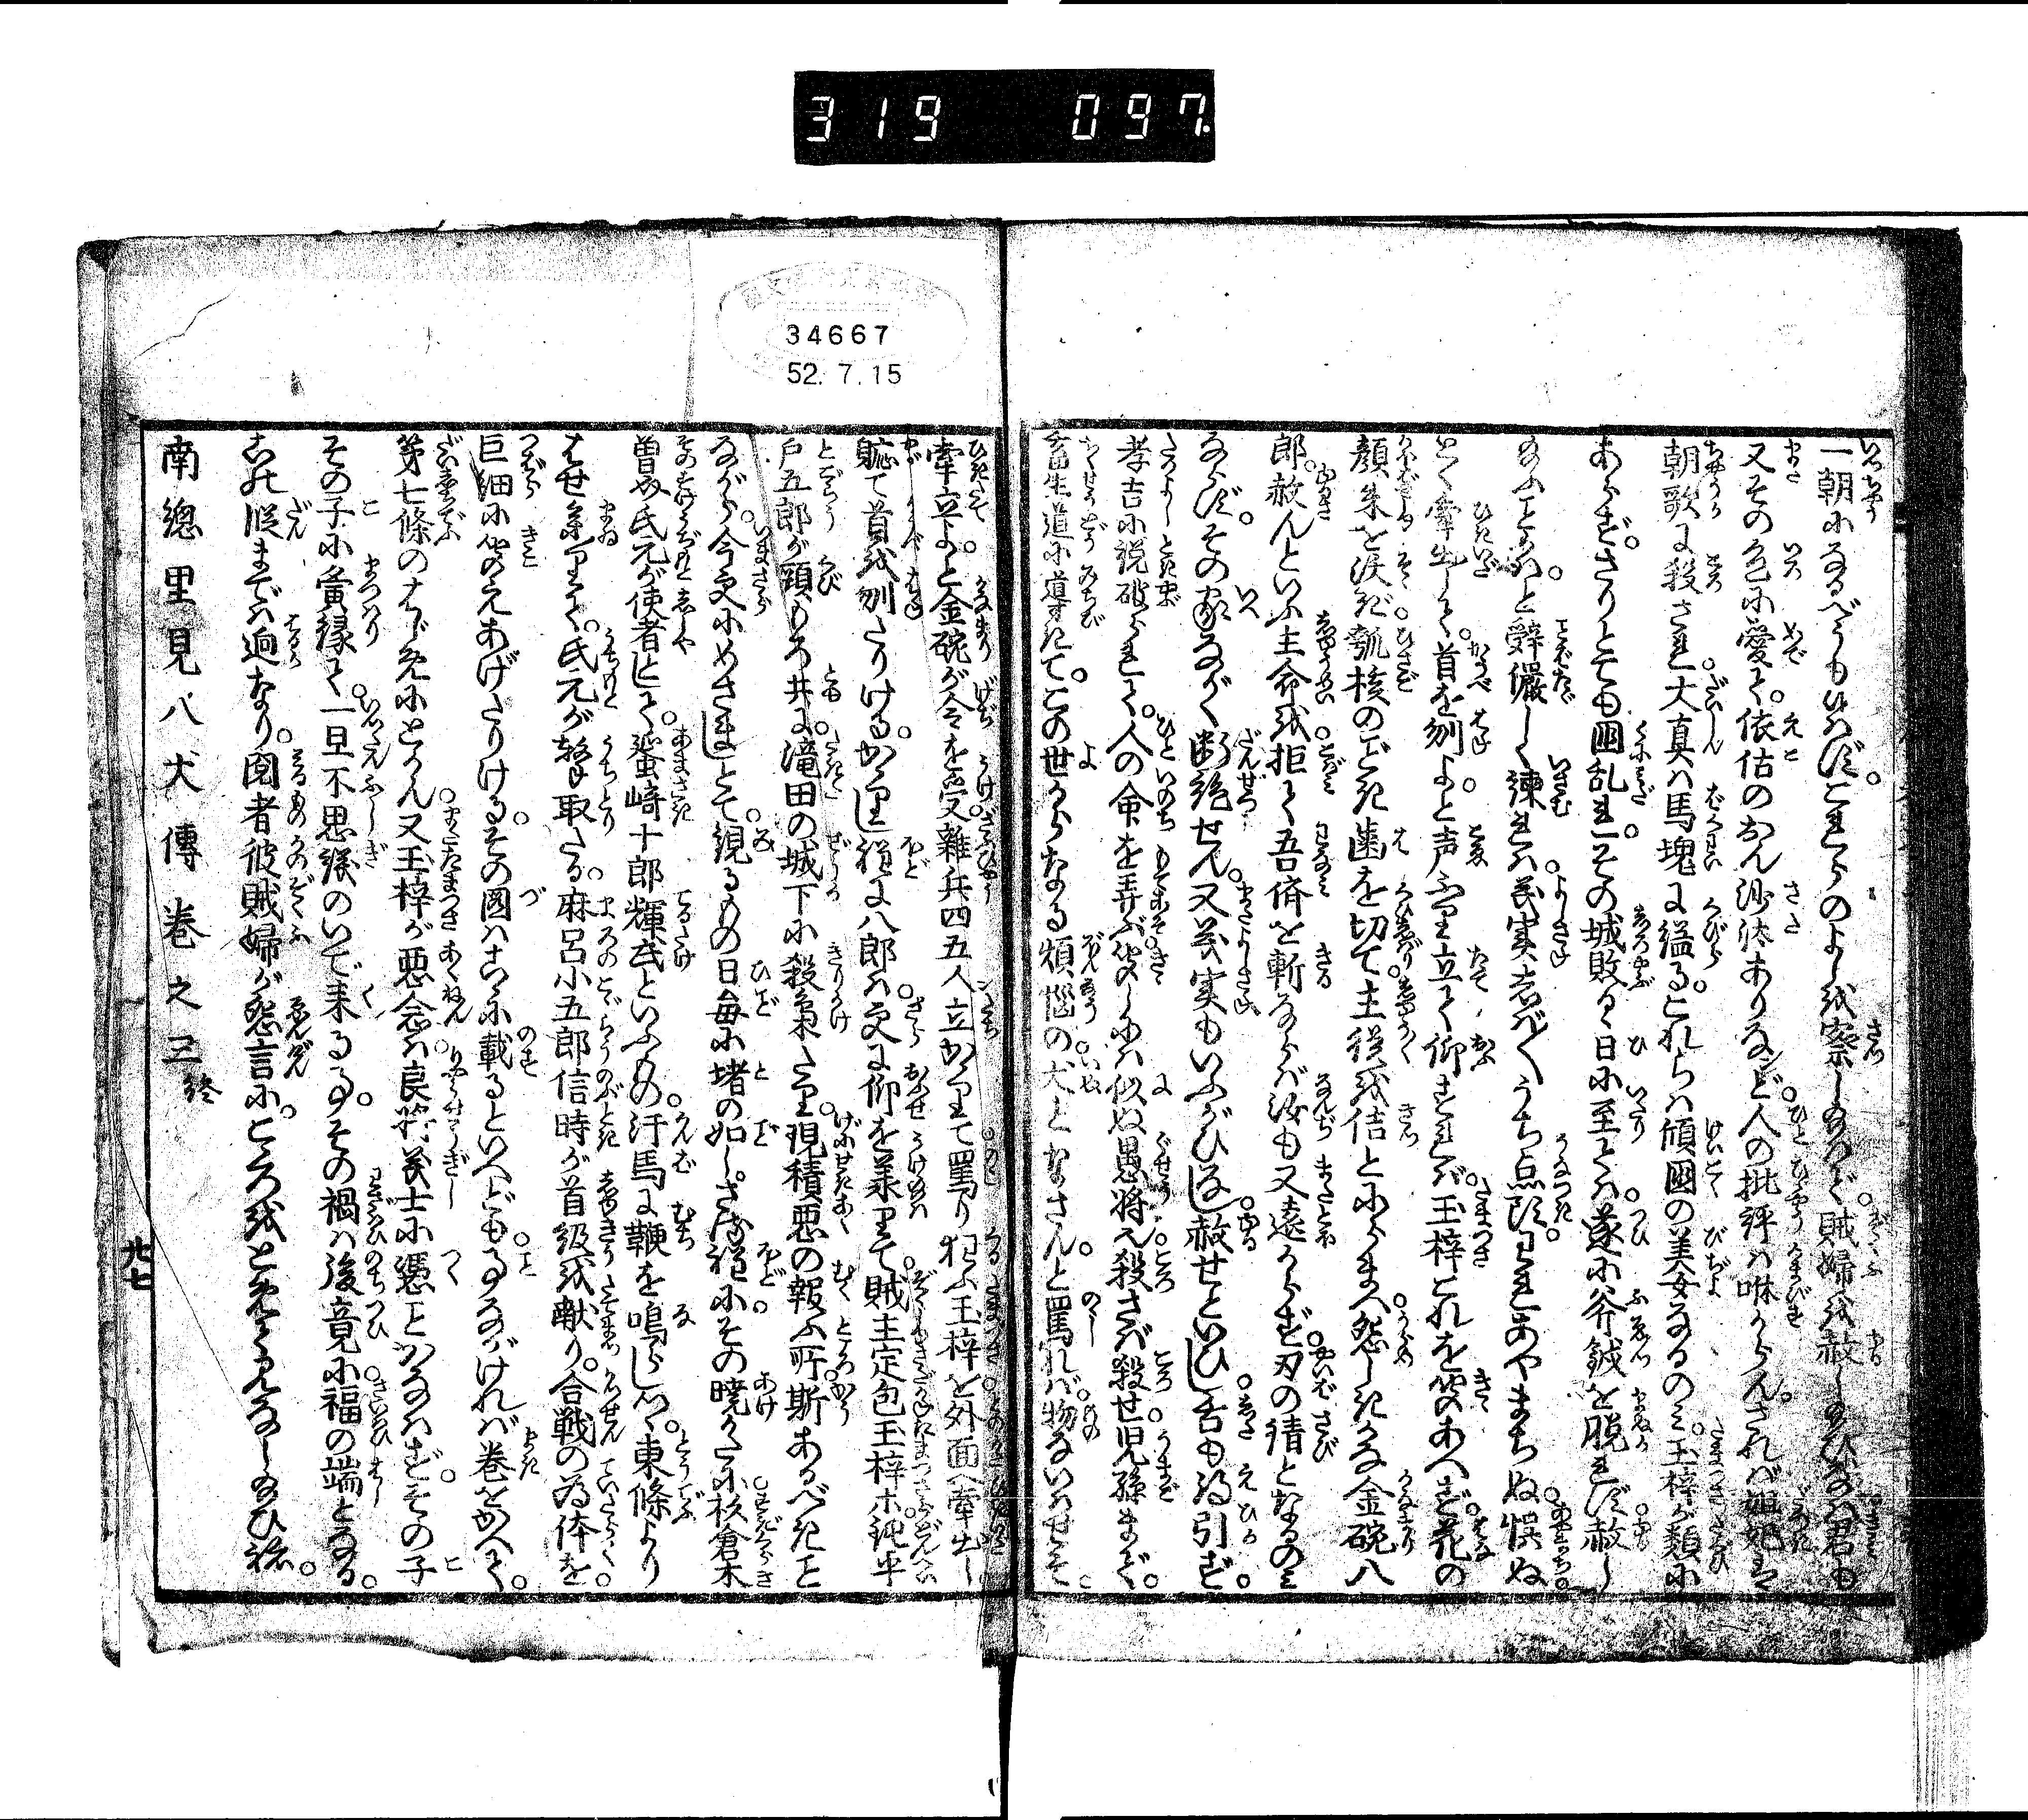 319 097.
34667
52.7.15
一朝になるべうも侍らず。これらのよしを察し給はで。賊婦を赦し給ひなば君も
又その色に愛て。依怙のおん沙汰ありなンど。人の批評は咻からん。されば妲妃は
朝歌に殺され。大真は馬塊に縊る。これらは傾國の美女なるのミ。玉梓が類に
あらず。さりとても國乱れ。その城敗るゝ日に至りては。遂に斧鉞を脱れず。赦し
給ふことかはと辞儼しく諫れば。義実しば〳〵うち点頭。われあやまちぬ悞ぬ
とく牽出して。首を刎よと声ふり立て仰すれば。玉梓これを聞あへず。花の
顔朱を沃ぎ瓠核のごとき歯を切て。主従を佶とにらまへ。怨しきかな金碗八
郎。赦んといふ主命を拒て吾儕を斬ならば。汝も又遠からず。刃の錆となるのミ
ならず。その家ながく断絶せん。又義実もいふがひなし。赦せといひし舌も得引ず。
孝吉に説破られて。人の命を弄ぶ。聞しには似ぬ愚将也。殺さば殺せ。児孫まで。
畜生道に導きて。この世からなる煩悩の犬となさんと罵れば。物ないはせそ
牽立よと。金碗が令を受。雑兵四五人立かゝりて罵り狂ふ玉梓を外面へ牽出し
軈て首を刎たりける。かゝりし程に八郎は。更に仰を承りて。賊主定包玉梓ホ。鈍平
戸五郎が頸もろ共に。滝田の城下に殺梟たり。現積悪の報ふ所。斯あるべきこと
ながら。今更にめさましとて。観るもの日毎に堵の如し。さる程に。その暁かたに杉倉木
曽介氏元が使者として。蜑崎十郎輝武といふもの。汗馬に鞭を鳴らしつゝ。東條より
はせ参りて。氏元が撃取たる。麻呂小五郎信時が首級を献り。合戦の為体を。
巨細に聞えあげたりける。その圖はこゝに載るといへども。事ながければ巻をかへて。
第七條のはじめにとかん。又玉梓が悪念は。良将義士に憑ことかなはず。その子
その子に夤縁て。一旦不思議のいで来る事。その禍は後竟に福の端となる。
この段までは迥なり。閲者彼賊婦が怨言に。こゝろをとめて見なし給ひね。
南總里見八犬傳巻之三終
廿七